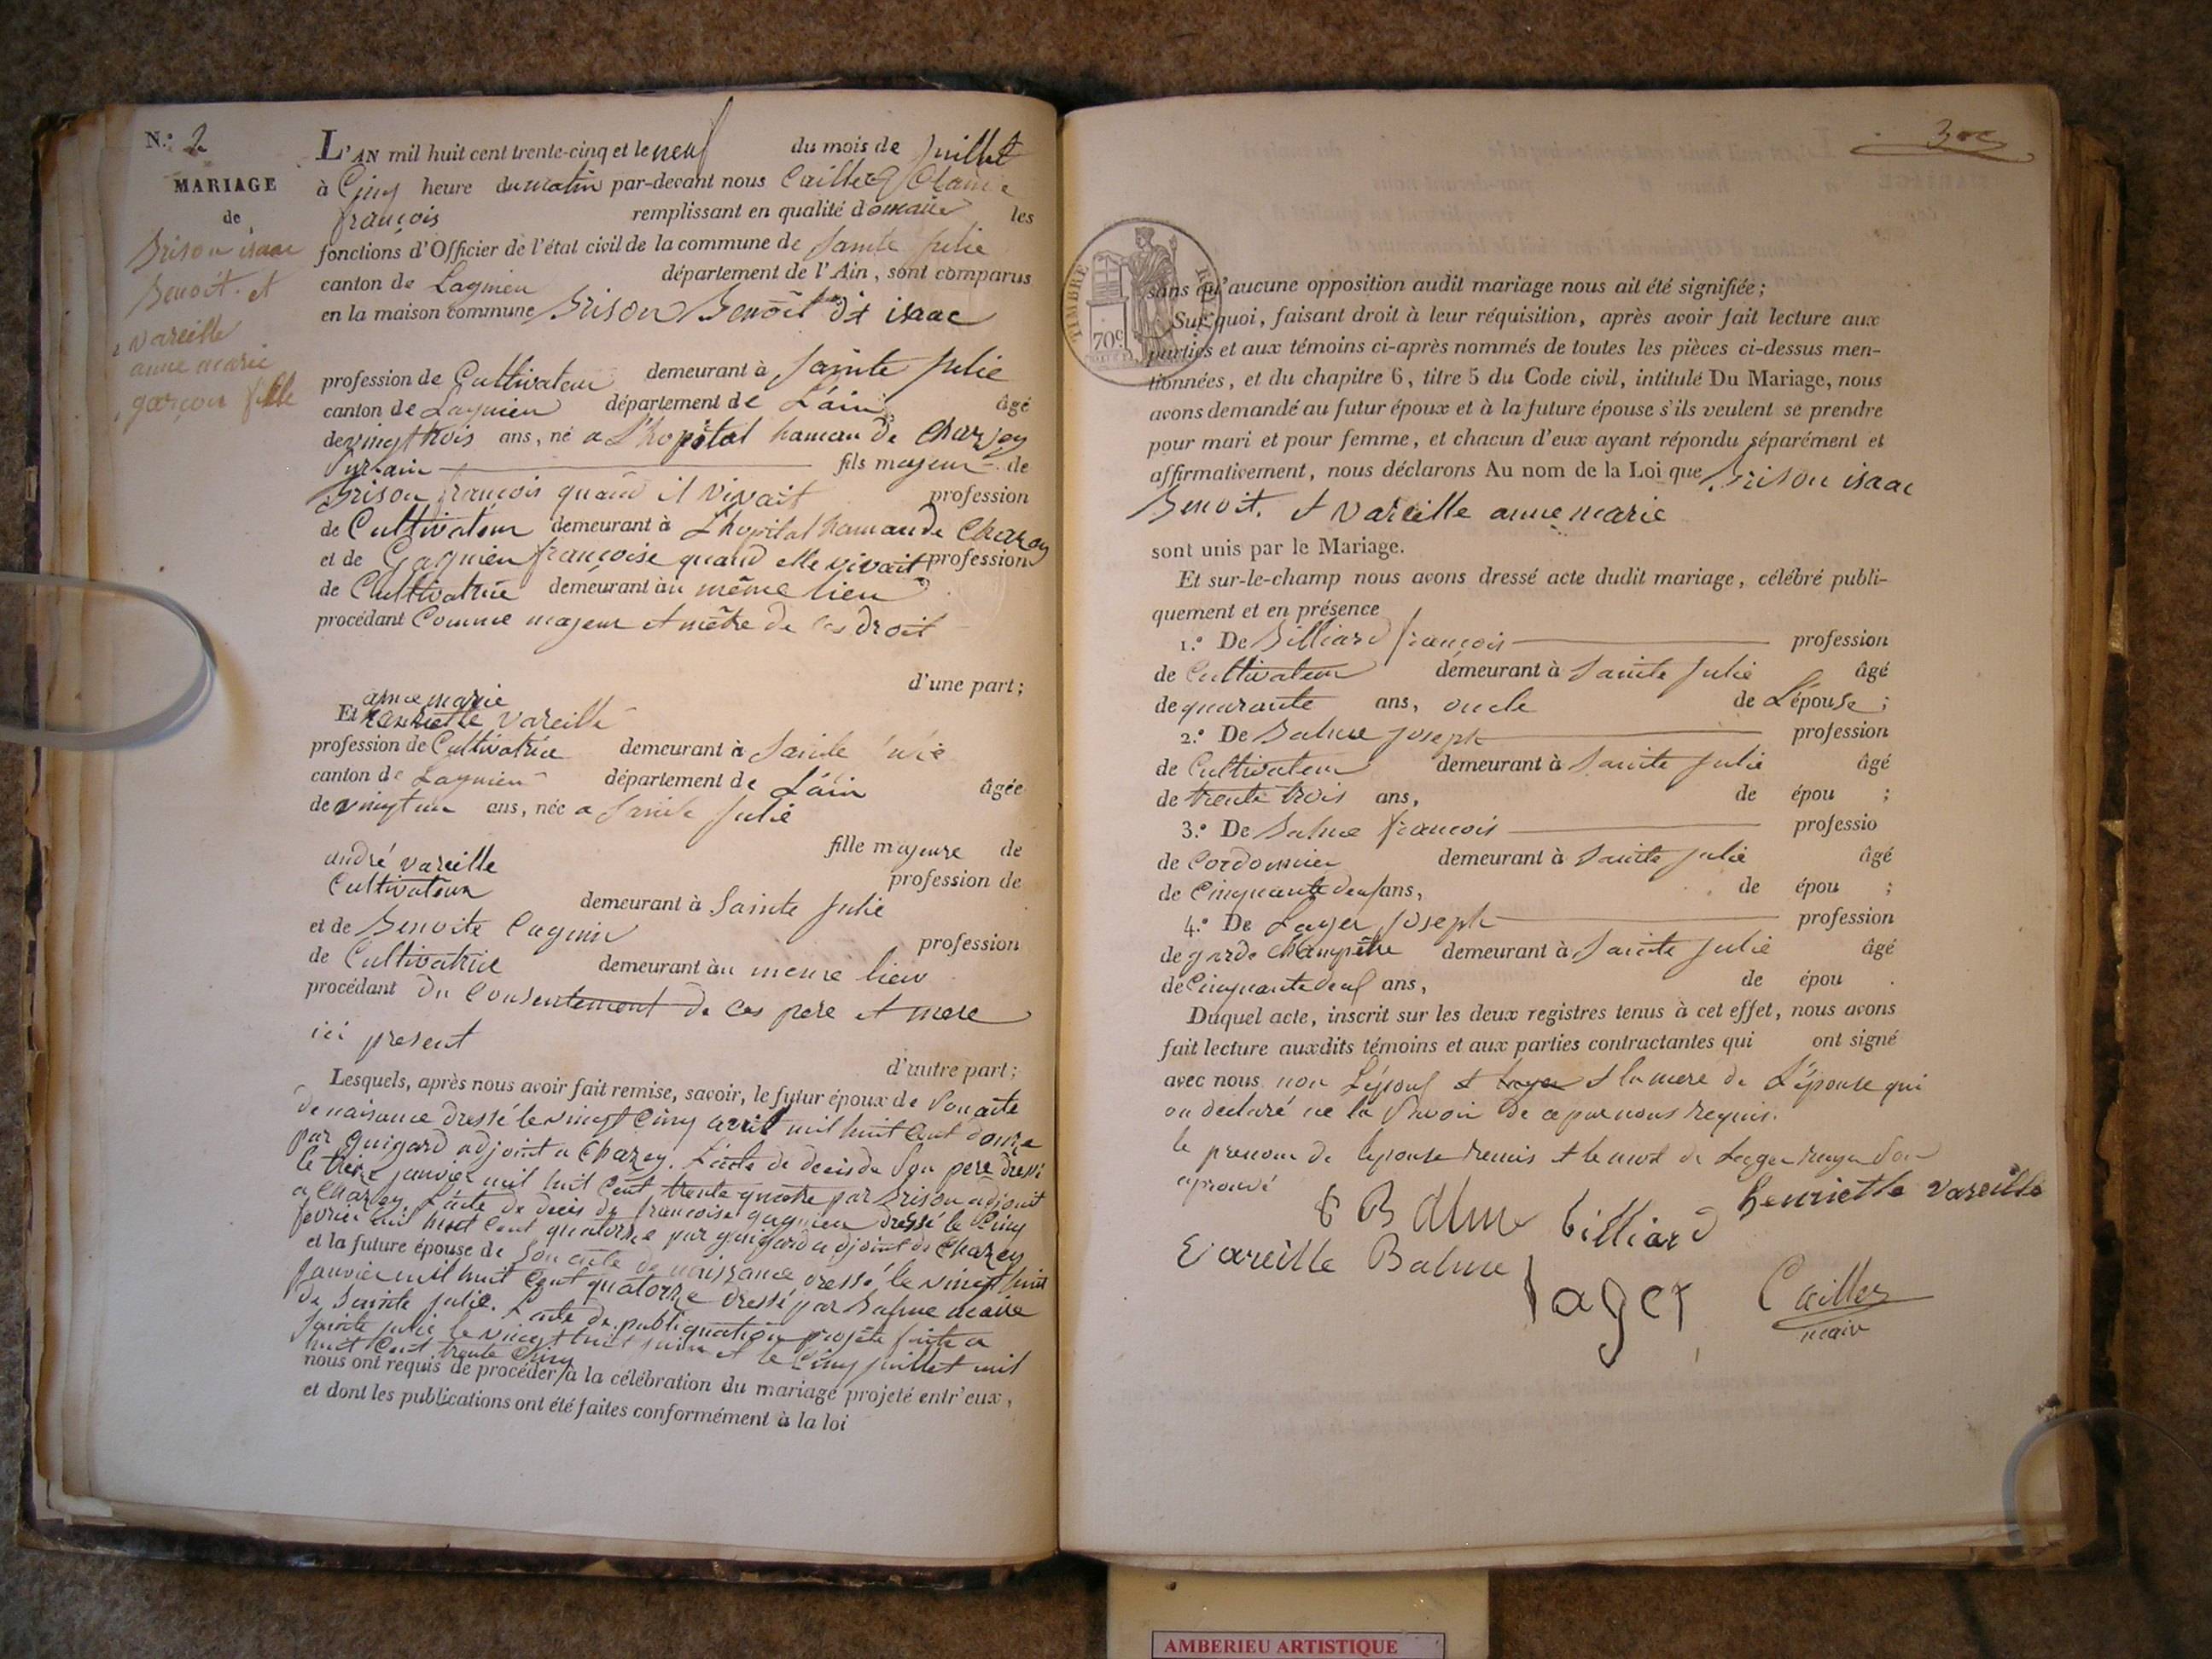 N.º 2
MARIAGE
de
Brison isaac
Benoit. et
vareille
anne marie
garçon fille
L'AN mil huit cent trente-cinq et le neuf du mois de juillet
à Cinq heure du matin par-devant nous Caillez Claude
françois remplissant en qualité de maire les
fonctions d'Officier de l'état civil de la commune de Sainte Julie
canton de Lagnieu département de l'Ain, sont comparus
en la maison commune Brison Benoît dit isaac
profession de Cultivateur demeurant à Sainte Julie
canton de Lagnieu département de L'ain âgé
de vingt trois ans, né a L'hopital hamau de Charzey
fils majeur de
Brison françois quand il vivait profession
de Cultivateur demeurant à L'hopital hamau de Chazey
et de Gagnieu françoise quand elle vivait profession
de Cultivatrice demeurant au même lieu
procédant Comme majeur et mêtre de ces droit
d'une part;
anne marie
Et henriette vareille
profession de Cultivatrice demeurant à Sainte Julie
canton de Lagnieu département de L'ain âgée
de vingt un ans, née a Sainte Julie
fille majeure de
andré vareille profession de
Cultivateur demeurant à Sainte Julie
et de Benoite Cagnin profession
de Cultivatrice demeurant au meme lieu
procédant du Consentement de ces pere et mere
ici present
d'autre part;
Lesquels, après nous avoir fait remise, savoir, le futur époux de Son acte
de naisance dressé le vingt Cinq avril mil huit Cent douze
par guigard adjoint a Chazey. L'acte de deces de Son pere dressé
le treize janvier mil huit Cent trente quatre par Brison adjoint
a Chazey. L'acte de deces de francoise gagnieu dressé le Cinq
fevrier mil huit Cent quatorze par guigard adjoint de Chazey
et la future épouse de Son acte de naissance dressé le vingt huit
janvier mil huit Cent quatorze dressé par Balme maire
de Sainte Julie. L'acte de publiquation projété faite a
Sainte Julie le vingt huit juin et le Cinq juillet mil
huit Cent trente Cinq
nous ont requis de procéder à la célébration du mariage projeté entr'eux,
et dont les publications ont été faites conformément à la loi
TIMBRE
70c
sans qu'aucune opposition audit mariage nous ait été signifiée;
Sur quoi, faisant droit à leur réquisition, après avoir fait lecture aux
parties et aux témoins ci-après nommés de toutes les pièces ci-dessus men-
tionnées, et du chapitre 6, titre 5 du Code civil, intitulé Du Mariage, nous
avons demandé au futur époux et à la future épouse s'ils veulent se prendre
pour mari et pour femme, et chacun d'eux ayant répondu séparément et
affirmativement, nous déclarons Au nom de la Loi que Brison isaac
Benoit. et vareille anne marie
sont unis par le Mariage.
Et sur-le-champ nous avons dressé acte dudit mariage, célébré publi-
quement et en présence
1.º De Billiard françois profession
de Cultivateur demeurant à Sainte Julie âgé
de quarante ans, oncle de L'épouse;
2.º De Balme joseph profession
de Cultivateur demeurant à Sainte Julie âgé
de trente trois ans, de épou ;
3.º De Balme francois professio
de Cordonnier demeurant à Sainte Julie âgé
de Cinquante deux ans, de épou ;
4.º De Lager joseph profession
de garde Champêtre demeurant à Sainte Julie âgé
de Cinquante deux ans, de épou .
Duquel acte, inscrit sur les deux registres tenus à cet effet, nous avons
fait lecture auxdits témoins et aux parties contractantes qui ont signé
avec nous non L'époux et Lager et la mere de L'épouse qui
on declaré ne la Savoir de ce par nous requis.
le prenom de lepouse remis et le mot de Lager
aprouvé
Balme billiard henriette vareille
Vareille Balme
lager Caillez
maire
AMBERIEU ARTISTIQUE